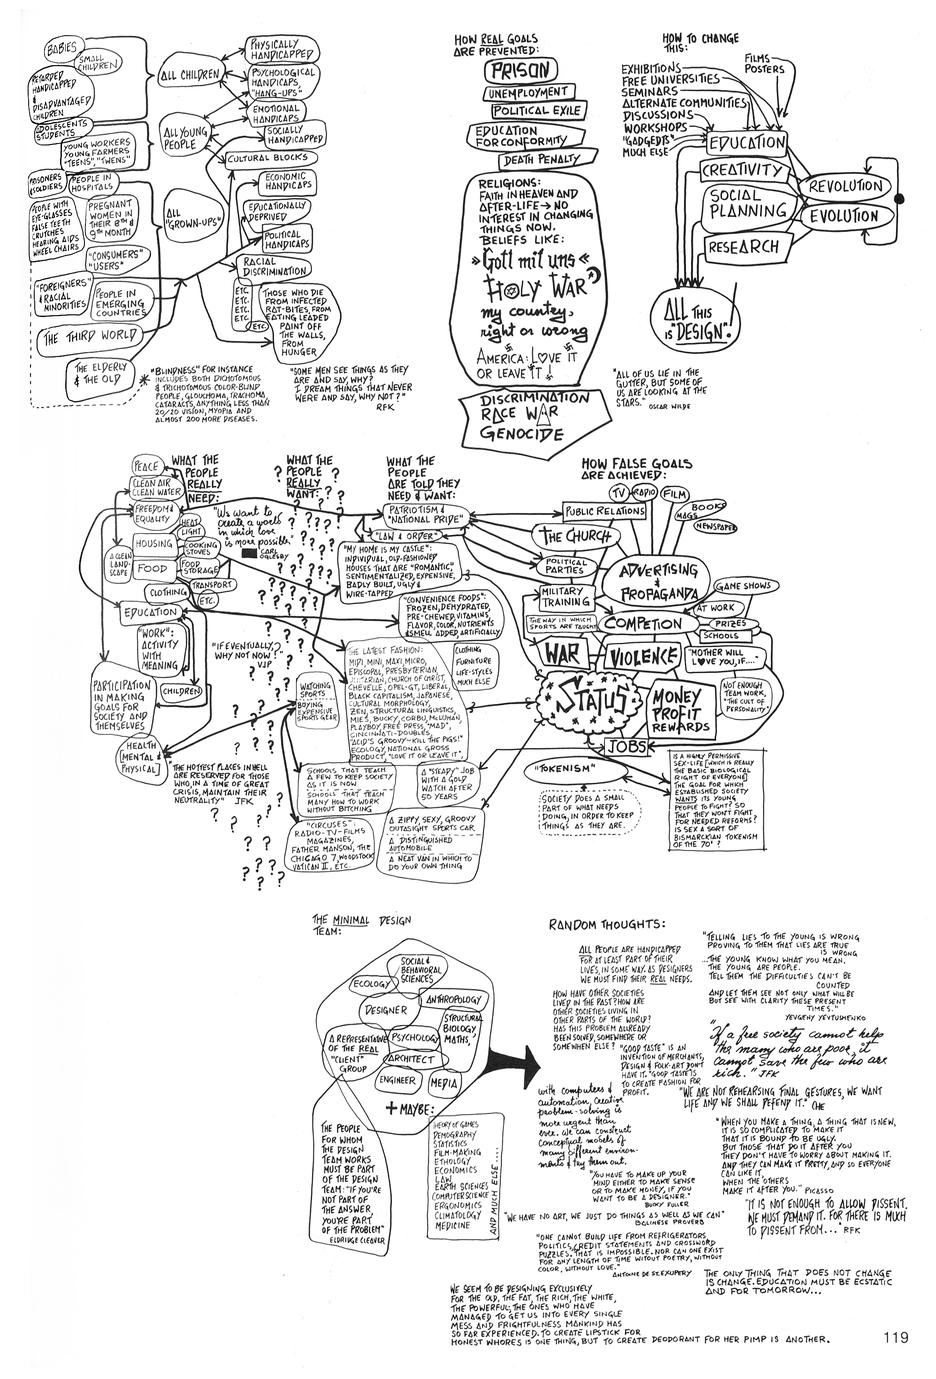 BABIES
SMALL
CHILDREN
RETARDED
HANDICAPPED
&
DISADVANTAGED
CHILDREN
ADOLESCENTS
STUDENTS
YOUNG WORKERS
YOUNG FARMERS
"TEENS", "TWENS"
PRISONERS
& SOLDIERS
PEOPLE IN
HOSPITALS
PEOPLE WITH
EYE-GLASSES
FALSE TEETH
CRUTCHES
HEARING AIDS
WHEEL CHAIRS
PREGNANT
WOMEN IN
THEIR 8TH &
9TH MONTH
"CONSUMERS"
"USERS"
"FOREIGNERS"
& RACIAL
MINORITIES
PEOPLE IN
EMERGING
COUNTRIES
THE THIRD WORLD
THE ELDERLY
& THE OLD
ALL CHILDREN
ALL YOUNG
PEOPLE
ALL
"GROWN-UPS"
PHYSICALLY
HANDICAPPED
PSYCHOLOGICAL
HANDICAPS,
"HANG-UPS"
EMOTIONAL
HANDICAPS
SOCIALLY
HANDICAPPED
CULTURAL BLOCKS
ECONOMIC
HANDICAPS
EDUCATIONALLY
DEPRIVED
POLITICAL
HANDICAPS
RACIAL
DISCRIMINATION
ETC.
ETC.
ETC.
ETC.
ETC.
THOSE WHO DIE
FROM INFECTED
RAT-BITES, FROM
EATING LEADED
PAINT OFF
THE WALLS,
FROM
HUNGER
* "BLINDNESS" FOR INSTANCE
INCLUDES BOTH DICHOTOMOUS
& TRICHOTOMOUS COLOR-BLIND
PEOPLE, GLOUCHOMA, TRACHOMA
CATARACTS, ANYTHING LESS THAN
20/20 VISION, MYOPIA AND
ALMOST 200 MORE DISEASES.
"SOME MEN SEE THINGS AS THEY
ARE AND SAY, WHY?
I DREAM THINGS THAT NEVER
WERE AND SAY, WHY NOT?"
RFK
HOW REAL GOALS
ARE PREVENTED:
PRISON
UNEMPLOYMENT
POLITICAL EXILE
EDUCATION
FOR CONFORMITY
DEATH PENALTY
RELIGIONS:
FAITH IN HEAVEN AND
AFTER-LIFE → NO
INTEREST IN CHANGING
THINGS NOW.
BELIEFS LIKE:
»Gott mit uns«
HOLY WAR
my country,
right or wrong
AMERICA: LOVE IT
OR LEAVE IT!
DISCRIMINATION
RACE WAR
GENOCIDE
HOW TO CHANGE
THIS:
FILMS
POSTERS
EXHIBITIONS
FREE UNIVERSITIES
SEMINARS
ALTERNATE COMMUNITIES
DISCUSSIONS
WORKSHOPS
"GADGETS"
MUCH ELSE
EDUCATION
CREATIVITY
SOCIAL
PLANNING
RESEARCH
REVOLUTION
EVOLUTION
ALL THIS
IS "DESIGN"!
"ALL OF US LIE IN THE
GUTTER, BUT SOME OF
US ARE LOOKING AT THE
STARS."
OSCAR WILDE
WHAT THE
PEOPLE
REALLY
NEED:
PEACE
CLEAN AIR
CLEAN WATER
FREEDOM &
EQUALITY
HEAT
LIGHT
HOUSING
COOKING
STOVES
A CLEAN
LAND-
SCAPE
FOOD
FOOD
STORAGE
CLOTHING
TRANSPORT
ETC.
EDUCATION
"WORK":
ACTIVITY
WITH
MEANING
CHILDREN
PARTICIPATION
IN MAKING
GOALS FOR
SOCIETY AND
THEMSELVES
HEALTH
[MENTAL &
PHYSICAL]
WHAT THE
PEOPLE
REALLY
WANT:
"We want to
create a world
in which love
is more possible."
CARL
OGLESBY
"IF EVENTUALLY,
WHY NOT NOW?"
VJP
"THE HOTTEST PLACES IN HELL
ARE RESERVED FOR THOSE
WHO, IN A TIME OF GREAT
CRISIS, MAINTAIN THEIR
NEUTRALITY" JFK
WHAT THE
PEOPLE
ARE TOLD THEY
NEED & WANT:
PATRIOTISM &
"NATIONAL PRIDE"
"LAW & ORDER"
"MY HOME IS MY CASTLE":
INDIVIDUAL, OLD-FASHIONED
HOUSES THAT ARE "ROMANTIC",
SENTIMENTALIZED, EXPENSIVE,
BADLY BUILT, UGLY &
WIRE-TAPPED
"CONVENIENCE FOODS":
FROZEN, DEHYDRATED,
PRE-CHEWED, VITAMINS,
FLAVOR, COLOR, NUTRIENTS
& SMELL ADDED, ARTIFICIALLY
THE LATEST FASHION:
MIDI, MINI, MAXI, MICRO,
EPISCOPAL, PRESBYTERIAN,
CHURCH OF CHRIST,
CHEVELLE, OPEL-GT, LIBERAL,
BLACK CAPITALISM, JAPANESE,
CULTURAL MORPHOLOGY,
ZEN, STRUCTURAL LINGUISTICS,
MIES, BUCKY, CORBU, MCLUHAN,
PLAYBOY, FREE PRESS, "MAD",
CINCINNATI-DOUBLES,
"ACID'S GROOVY~KILL THE PIGS!"
ECOLOGY, NATIONAL GROSS
PRODUCT, "LOVE IT OR LEAVE IT",
CLOTHING
FURNITURE
LIFE-STYLES
MUCH ELSE
WATCHING
SPORTS
BUYING
EXPENSIVE
SPORTS GEAR
SCHOOLS THAT TEACH
A FEW TO KEEP SOCIETY
AS IT IS NOW
SCHOOLS THAT TEACH
MANY HOW TO WORK
WITHOUT BITCHING
A "STEADY" JOB
WITH A GOLD
WATCH AFTER
50 YEARS
"CIRCUSES":
RADIO-TV-FILMS
MAGAZINES,
FATHER MANSON, THE
CHICAGO 7, WOODSTOCK
VATICAN II, ETC.
A ZIPPY, SEXY, GROOVY
OUTASIGHT SPORTS CAR
A DISTINGUISHED
AUTOMOBILE
A NEAT VAN IN WHICH TO
DO YOUR OWN THING
HOW FALSE GOALS
ARE ACHIEVED:
TV
RADIO
FILM
BOOKS
MAGS
NEWSPAPER
PUBLIC RELATIONS
THE CHURCH
POLITICAL
PARTIES
ADVERTISING
&
PROPAGANDA
MILITARY
TRAINING
GAME SHOWS
AT WORK
THE WAY IN WHICH
SPORTS ARE TAUGHT
COMPETION
PRIZES
SCHOOLS
WAR
VIOLENCE
"MOTHER WILL
LOVE YOU, IF...."
STATUS
MONEY
PROFIT
REWARDS
NOT ENOUGH
TEAM WORK,
"THE CULT OF
PERSONALITY"
JOBS
"TOKENISM"
SOCIETY DOES A SMALL
PART OF WHAT NEEDS
DOING, IN ORDER TO KEEP
THINGS AS THEY ARE.
IS A HIGHLY PERMISSIVE
SEX-LIFE [WHICH IS REALLY
THE BASIC BIOLOGICAL
RIGHT OF EVERYONE]
THE GOAL FOR WHICH
ESTABLISHED SOCIETY
WANTS ITS YOUNG
PEOPLE TO FIGHT? SO
THAT THEY WON'T FIGHT
FOR NEEDED REFORMS?
IS SEX A SORT OF
BISMARCKIAN TOKENISM
OF THE 70'?
THE MINIMAL DESIGN
TEAM:
SOCIAL &
BEHAVIORAL
SCIENCES
ECOLOGY
ANTHROPOLOGY
DESIGNER
STRUCTURAL
BIOLOGY,
MATHS,
A REPRESENTATIVE
OF THE REAL
"CLIENT"
GROUP
PSYCHOLOGY
ARCHITECT
ENGINEER
MEDIA
+ MAYBE:
THE PEOPLE
FOR WHOM
THE DESIGN
TEAM WORKS
MUST BE PART
OF THE DESIGN
TEAM: "IF YOU'RE
NOT PART OF
THE ANSWER,
YOU'RE PART
OF THE PROBLEM"
ELDRIDGE CLEAVER
THEORY OF GAMES
DEMOGRAPHY
STATISTICS
FILM-MAKING
ETHOLOGY
ECONOMICS
LAW
EARTH SCIENCES
COMPUTER SCIENCE
ERGONOMICS
CLIMATOLOGY
MEDICINE
AND MUCH ELSE....
RANDOM THOUGHTS:
ALL PEOPLE ARE HANDICAPPED
FOR AT LEAST PART OF THEIR
LIVES, IN SOME WAY. AS DESIGNERS
WE MUST FIND THEIR REAL NEEDS.
HOW HAVE OTHER SOCIETIES
LIVED IN THE PAST? HOW ARE
OTHER SOCIETIES LIVING IN
OTHER PARTS OF THE WORLD?
HAS THIS PROBLEM ALREADY
BEEN SOLVED, SOMEWHERE OR
SOMEWHEN ELSE?
"GOOD TASTE" IS AN
INVENTION OF MERCHANTS,
DESIGN & FOLK-ART DON'T
HAVE IT. "GOOD TASTE" IS
TO CREATE FASHION FOR
PROFIT.
with computers &
automation, creative
problem-solving is
more urgent than
ever. We can construct
conceptual models of
many different environ-
ments & try them out.
"YOU HAVE TO MAKE UP YOUR
MIND EITHER TO MAKE SENSE
OR TO MAKE MONEY, IF YOU
WANT TO BE A DESIGNER."
BUCKY FULLER
"WE HAVE NO ART, WE JUST DO THINGS AS WELL AS WE CAN"
BALINESE PROVERB
"ONE CANNOT BUILD LIFE FROM REFRIGERATORS
POLITICS, CREDIT STATEMENTS AND CROSSWORD
PUZZLES. THAT IS IMPOSSIBLE. NOR CAN ONE EXIST
FOR ANY LENGTH OF TIME WITOUT POETRY, WITHOUT
COLOR, WITHOUT LOVE."
ANTOINE DE ST. EXUPERY
WE SEEM TO BE DESIGNING EXCLUSIVELY
FOR THE OLD, THE FAT, THE RICH, THE WHITE,
THE POWERFUL, THE ONES WHO HAVE
MANAGED TO GET US INTO EVERY SINGLE
MESS AND FRIGHTFULNESS MANKIND HAS
SO FAR EXPERIENCED. TO CREATE LIPSTICK FOR
HONEST WHORES IS ONE THING, BUT TO CREATE DEODORANT FOR HER PIMP IS ANOTHER.
"TELLING LIES TO THE YOUNG IS WRONG
PROVING TO THEM THAT LIES ARE TRUE
IS WRONG
...THE YOUNG KNOW WHAT YOU MEAN.
THE YOUNG ARE PEOPLE.
TELL THEM THE DIFFICULTIES CAN'T BE
COUNTED
AND LET THEM SEE NOT ONLY WHAT WILL BE
BUT SEE WITH CLARITY THESE PRESENT
TIMES."
YEVGENY YEVTUSHENKO
"If a free society cannot help
the many who are poor, it
cannot save the few who are
rich." JFK
"WE ARE NOT REHEARSING FINAL GESTURES, WE WANT
LIFE AND WE SHALL DEFEND IT." CHE
"WHEN YOU MAKE A THING, A THING THAT IS NEW,
IT IS SO COMPLICATED TO MAKE IT
THAT IT IS BOUND TO BE UGLY.
BUT THOSE THAT DO IT AFTER YOU
THEY DON'T HAVE TO WORRY ABOUT MAKING IT.
AND THEY CAN MAKE IT PRETTY, AND SO EVERYONE
CAN LIKE IT
WHEN THE OTHERS
MAKE IT AFTER YOU." PICASSO
"IT IS NOT ENOUGH TO ALLOW DISSENT.
WE MUST DEMAND IT. FOR THERE IS MUCH
TO DISSENT FROM..." RFK
THE ONLY THING THAT DOES NOT CHANGE
IS CHANGE. EDUCATION MUST BE ECSTATIC
AND FOR TOMORROW...
119